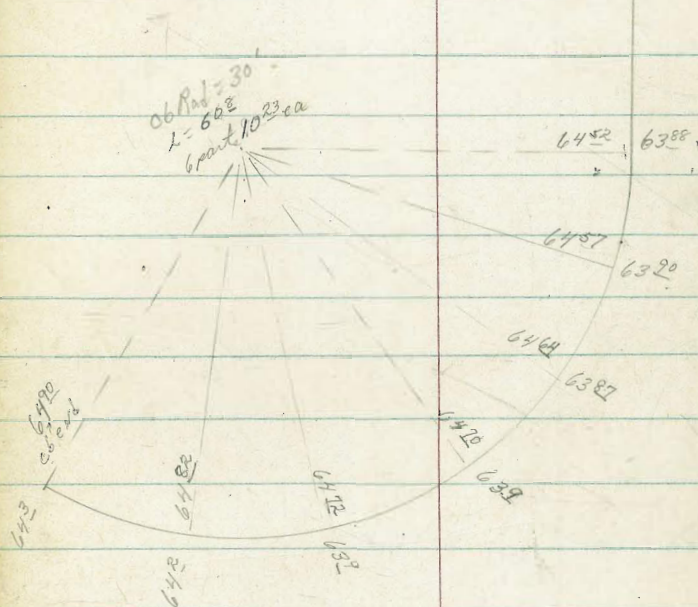 Cb Rad = 30'
L = 60⁸
6 parts 10²³ ea
64⁵²
63⁸⁸
64⁵⁷
63⁹⁰
64⁶⁴
63⁸⁷
64⁷⁰
63⁹
64⁷²
63⁹
64⁸²
64²
64⁹⁰
cb end
64³